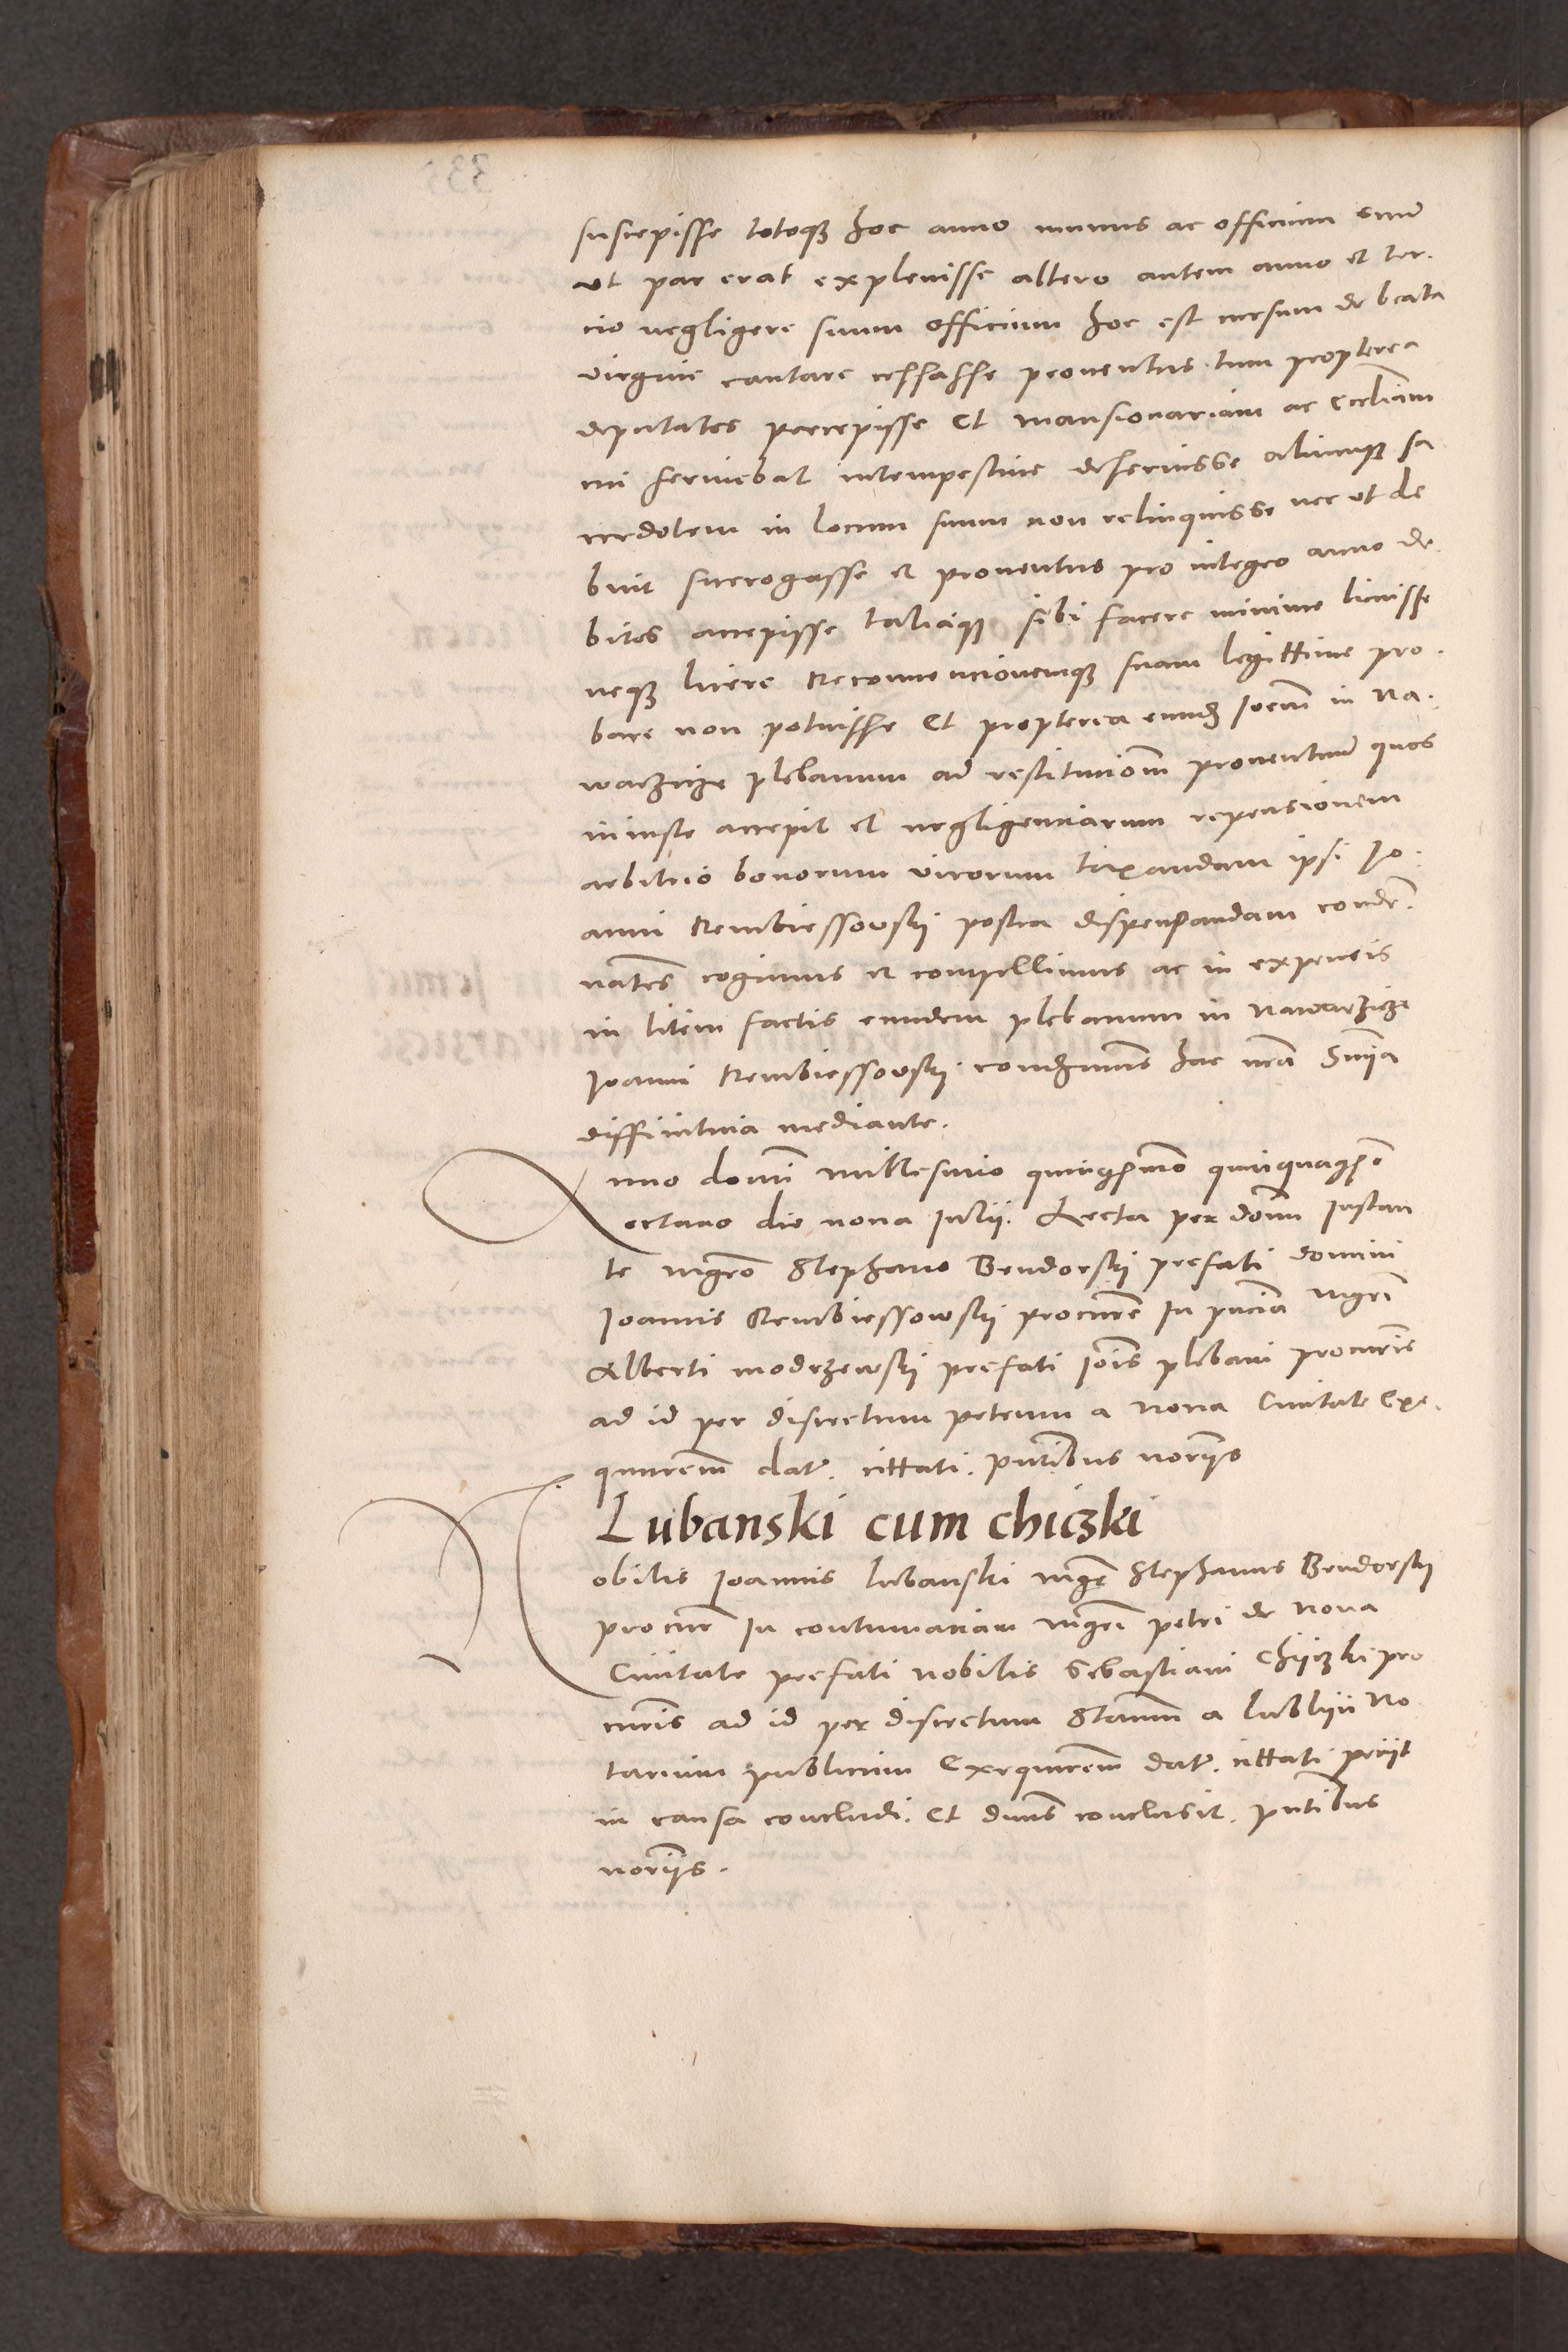 suscepisse totoq3 hoc anno munus ac officium suu
ut par erat explevisse altero autem anno et ter.
cio negligere suum officium hoc est cursum de beata
virgine cantare cessasse proventus tum propterea
deputatos percepisse Et mansionariam ac eccliam
cui serviebat intempestive deservisse aliumq3 sa
cerdotem in locum suum non relinquisse nec ut de
buit surrogasse et proventus pro integro anno de
bitos accepisse taliaq3 sibi facere minime licuisse
neq3 licere Reconvencionemq3 suam legittime pro.
bare non potuisse Et propterea eund3 Joem in Na.
warzicze plebanum ad restitucionem proventuu quos
iniuste accepit et negligenciarum repensionem
arbitrio bonorum virorum taxandam ipsi Jo.
anni Rembiessowskj postea dispensandam conde.
nates cogimus et compellimus ac in expensis
in litem factis eundem plebanum in Nawarzicze
Joanni Rembiessowskj condemnus hac nra Snia
diffinitiva mediante.
Anno domi millesimo quingsmo quinquags.
octavo die nona Julii. Lecta per donu Instan
te mgro Stephano Bendorskj prefati domini
Joannis Rembiessowskj procure In pncia mgri
Alberti modrzewskj prefati Jois plebani procuris
ad id per discretum petrum a Nova Civitate Exe.
quurem dat. cittati. pntibus noriis
Lubanski cum chiczki
Nobilis Joannis lubanski mgr Stephanus Bendorskj
procur In contumaciam mgri petri de Nova
Civitate prefati nobilis Sebastiani Chijczki pro
curis ad id per discretum Stanum a lublijn No
tarium publicum Exequurem dat. cittati. petijt
in causa concludi. Et duns conclusit. pntibus
noriis.